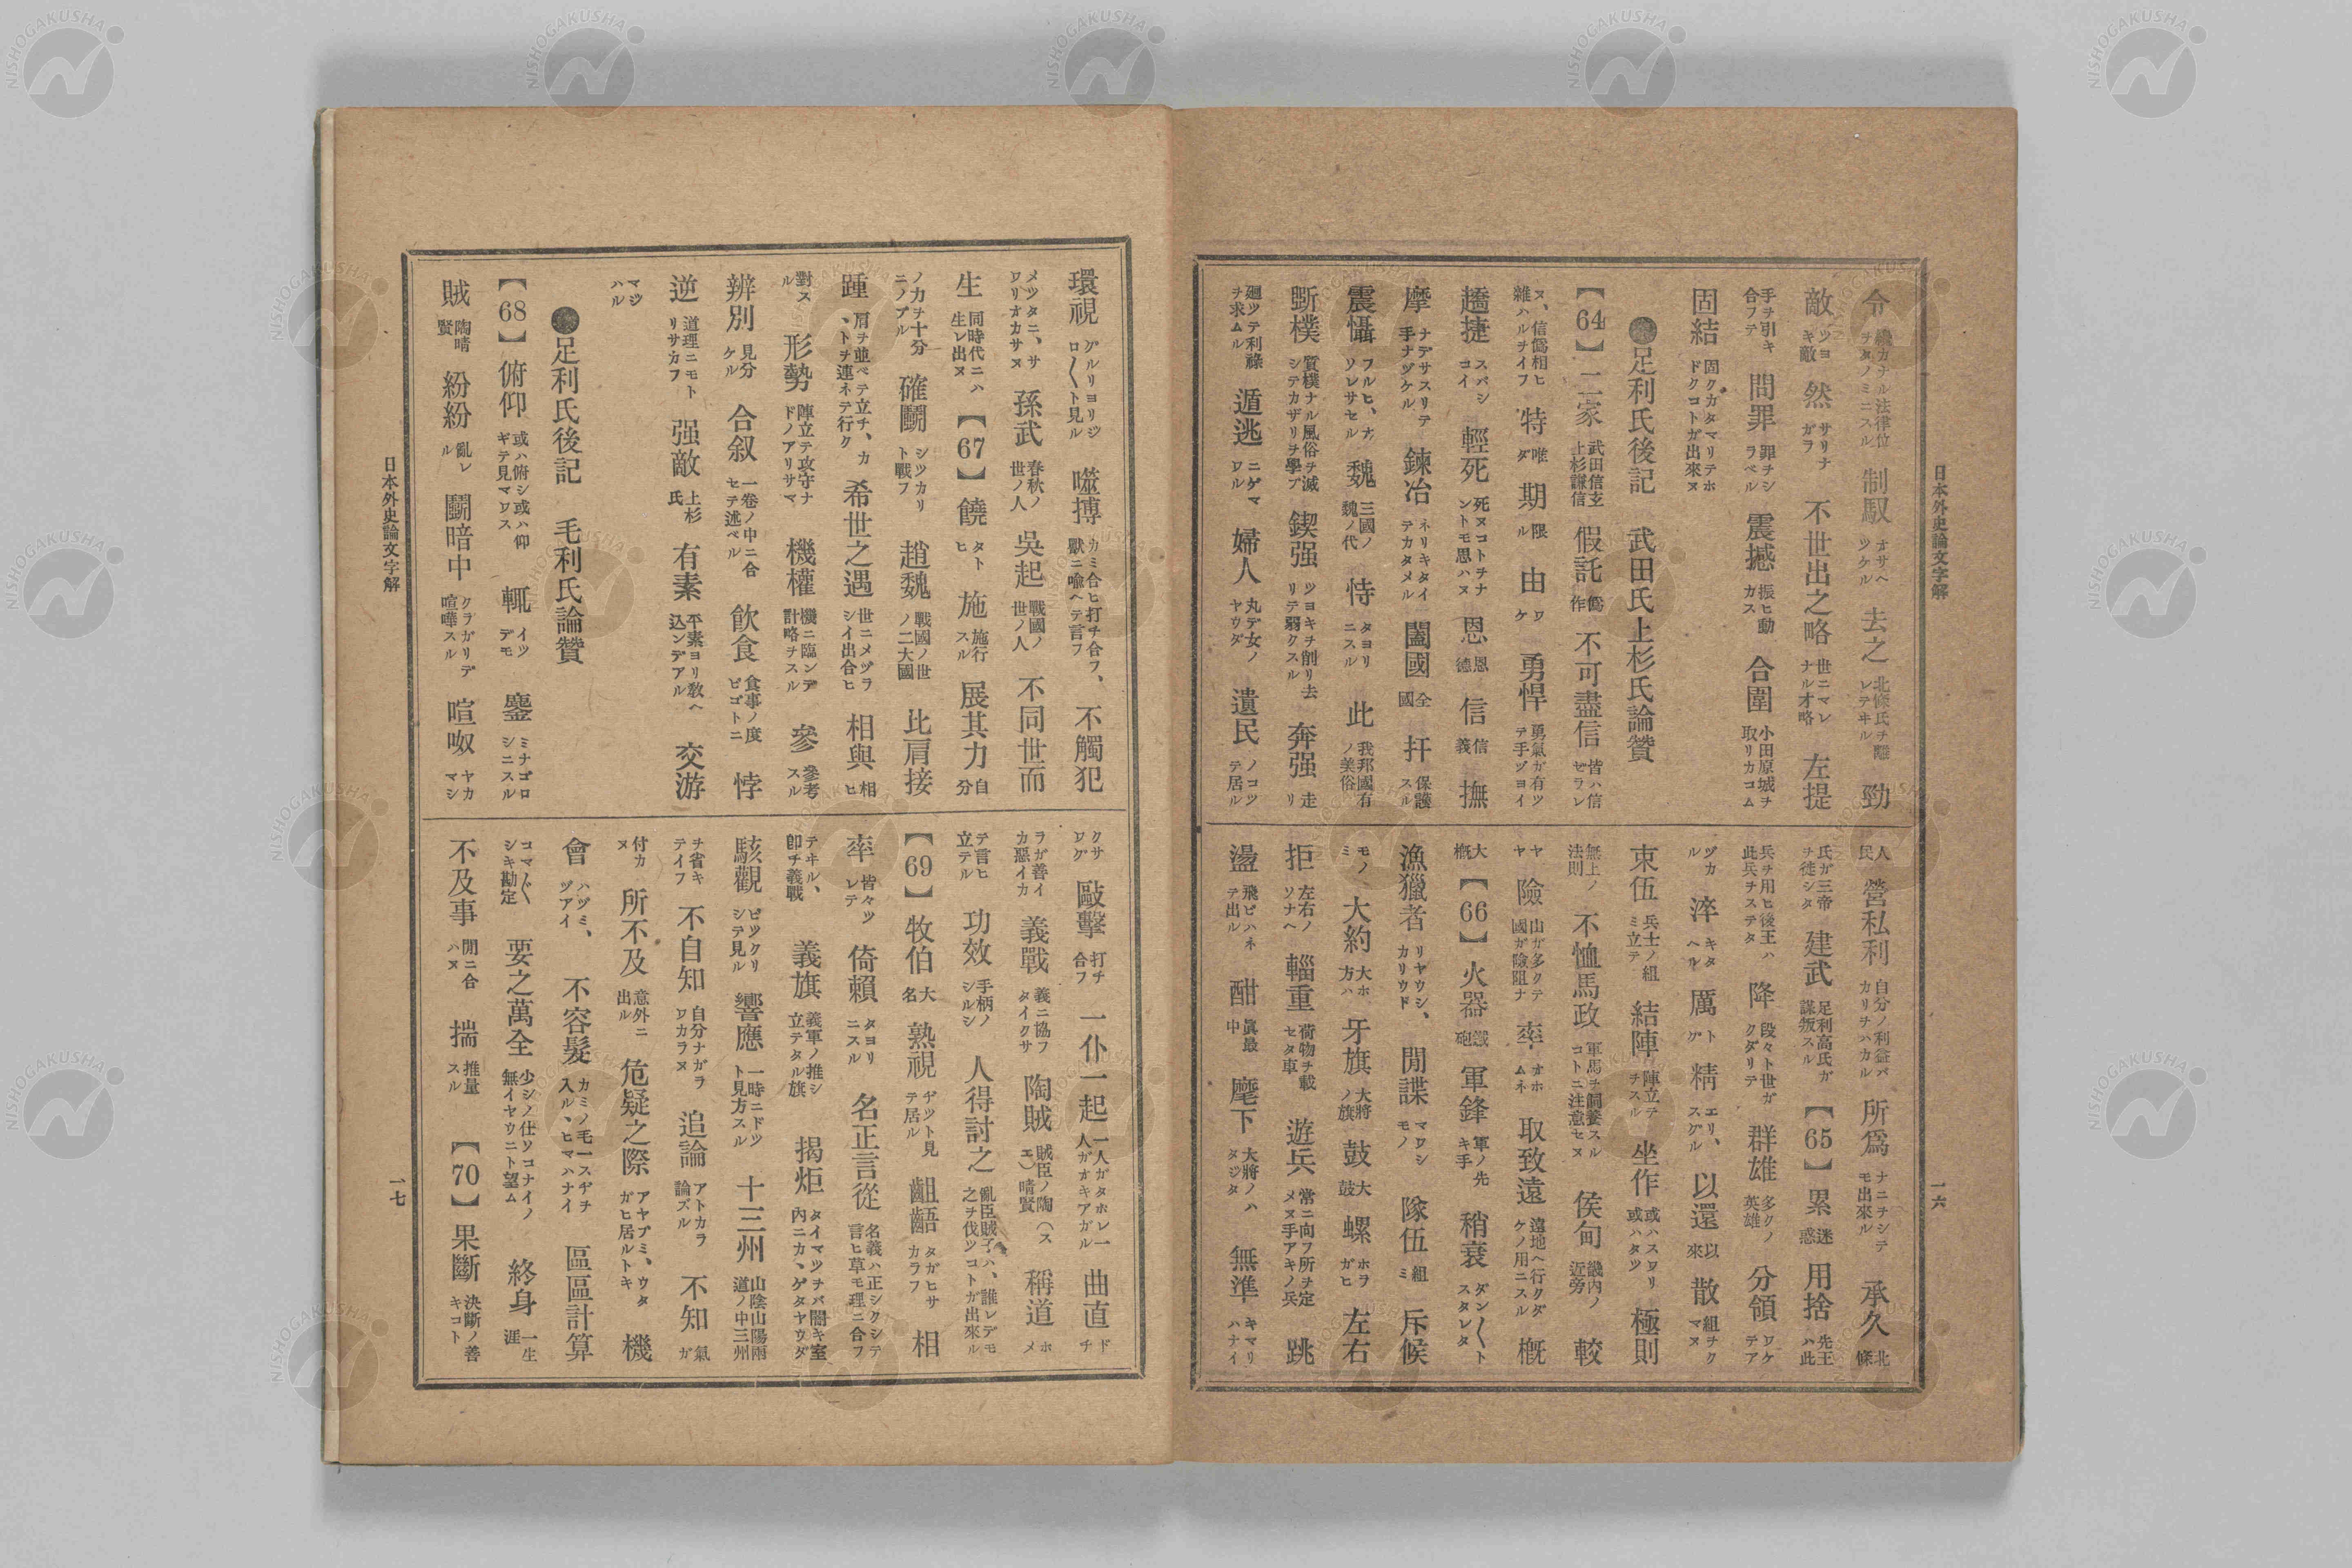 日本外史論文字解
一六
令 纔カナル法律位ヲタノミニスル 制馭 オサヘツケル 去之 北條氏ヲ離レテヰル 勁
敵 ツヨキ敵 然 サリナガラ 不世出之略 世ニマレナル才略 左提
手ヲ引キ合フテ 問罪 罪ヲシラベル 震撼 振ヒ動カス 合圍 小田原城ヲ取リカコム
固結 固クカタマリテホドクコトガ出來ヌ
●足利氏後記 武田氏上杉氏論贊
【64】二家 武田信玄上杉謙信 假託 僞作 不可盡信 皆ハ信ゼラレ
ヌ、信僞相ヒ雜ハルヲイフ 特 唯ダ 期 限ル 由 ワケ 勇悍 勇氣ガ有ツテ手ヅヨイ
趫捷 スバシコイ 輕死 死ヌコトヲナントモ思ハヌ 恩 恩德 信 信義 撫
摩 ナデサスリテ手ナヅケル 鍊冶 ネリキタイテカタメル 闔國 全國 扞 保護スル
震懾 フルヒ、オソレサセル 魏 三國ノ魏ノ代 恃 タヨリニスル 此 我邦國有ノ美俗
斲樸 質樸ナル風俗ヲ滅シテカザリヲ學ブ 鍥强 ツヨキヲ削リ去リテ弱クスル 奔强 走リ
廻ツテ利祿ヲ求ムル 遁逃 ニゲマワル 婦人 丸デ女ノヤウダ 遺民 ノコツテ居ル
人民 營私利 自分ノ利益バカリヲハカル 所爲 ナニヲシテモ出來ル 承久 北條
氏ガ三帝ヲ徙シタ 建武 足利高氏ガ謀叛スル 【65】累 迷惑 用捨 先王ハ此
兵ヲ用ヒ後王ハ此兵ヲステタ 降 段々ト世ガクダリテ 群雄 多クノ英雄 分領 ワケテア
ヅカル 淬 キタヘル 厲 トグ 精 エリ、スグル 以還 以來 散 組ヲクマヌ
束伍 兵士ノ組ミ立テ 結陣 陣立テヲスル 坐作 或ハスワリ或ハタツ 極則
無上ノ法則 不恤馬政 軍馬ヲ飼養スルコトニ注意セヌ 侯甸 畿內ノ近旁 較
ヤヤ 險 山ガ多クテ國ガ險阻ナ 率 オホムネ 取致遠 遠地ヘ行クダケノ用ニスル 概
大概 【66】火器 鐵砲 軍鋒 軍ノ先キ手 稍衰 ダン〱トスタレタ
漁獵者 リヤウシ、カリウド 閒諜 マワシモノ 隊伍 組ミ 斥候
モノミ 大約 大ホ方ハ 牙旗 大將ノ旗 鼓 大鼓 螺 ホラガヒ 左右
拒 左右ノソナヘ 輜重 荷物ヲ載セタ車 遊兵 常ニ向フ所ヲ定メヌ手アキノ兵 跳
盪 飛ビハネテ出ル 酣 眞最中 麾下 大將ノハタジタ 無準 キマリハナイ
環視 グルリヨリジロ〱ト見ル 噬搏 カミ合ヒ打チ合フ、獸ニ喩ヘテ言フ 不觸犯
メツタニ、サワリオカサヌ 孫武 春秋ノ世ノ人 吳起 戰國ノ世ノ人 不同世而
生 同時代ニハ生レ出ヌ 【67】饒 タトヒ 施 施行スル 展其力 自分
ノ力ヲ十分ニノブル 確鬭 シツカリト戰フ 趙魏 戰國ノ世ノ二大國 比肩接
踵 肩ヲ並ベテ立チ、カヽトヲ連ネテ行ク 希世之遇 世ニメヅラシイ出合ヒ 相與 相ヒ
對スル 形勢 陣立テ攻守ナドノアリサマ 機權 機ニ臨ンデ計略ヲスル 參 參考スル
辨別 見分ケル 合叙 一卷ノ中ニ合セテ述ベル 飮食 食事ノ度ビゴトニ 悖
逆 道理ニモトリサカフ 强敵 上杉氏 有素 平素ヨリ敎ヘ込ンデアル 交游
マジハル
●足利氏後記 毛利氏論贊
【68】俯仰 或ハ俯シ或ハ仰ギテ見マワス 輒 イツデモ 鏖 ミナゴロシニスル
賊 陶晴賢 紛紛 亂レル 鬭暗中 クラガリデ喧嘩スル 喧呶 ヤカマシ
クサワグ 敺擊 打チ合フ 一仆一起 一人ガタホレ一人ガオキアガル 曲直 ドチ
ラガ善イカ惡イカ 義戰 義ニ協フタイクサ 陶賊 賊臣ノ陶(スエ)晴賢 稱道 ホメ
テ言ヒ立テル 功效 手柄ノシルシ 人得討之 亂臣賊子ハ、誰レデモ之ヲ伐ツコトガ出來ル
【69】牧伯 大名 熟視 ヂツト見テ居ル 齟齬 タガヒサカラフ 相
率 皆々ツレテ 倚賴 タヨリニスル 名正言從 名義ハ正シクシテ言ヒ草モ理ニ合フ
テヰル、卽チ義戰 義旗 義軍ノ推シ立テタル旗 揭炬 タイマツヲバ闇キ室內ニカヽゲタヤウダ
駭觀 ビツクリシテ見ル 響應 一時ニドツト見方スル 十三州 山陰山陽兩道ノ中三州
ヲ省キテイフ 不自知 自分ナガラワカラヌ 追論 アトカラ論ズル 不知 氣ガ
付カヌ 所不及 意外ニ出ル 危疑之際 アヤブミ、ウタガヒ居ルトキ 機
會 ハヅミ、ヅアイ 不容髮 カミノ毛一スヂヲ入ルヽヒマハナイ 區區計算
コマ〲シキ勘定 要之萬全 少シノ仕ソコナイノ無イヤウニト望ム 終身 一生涯
不及事 閒ニ合ハヌ 揣 推量スル 【70】果斷 決斷ノ善キコト
日本外史論文字解
一七